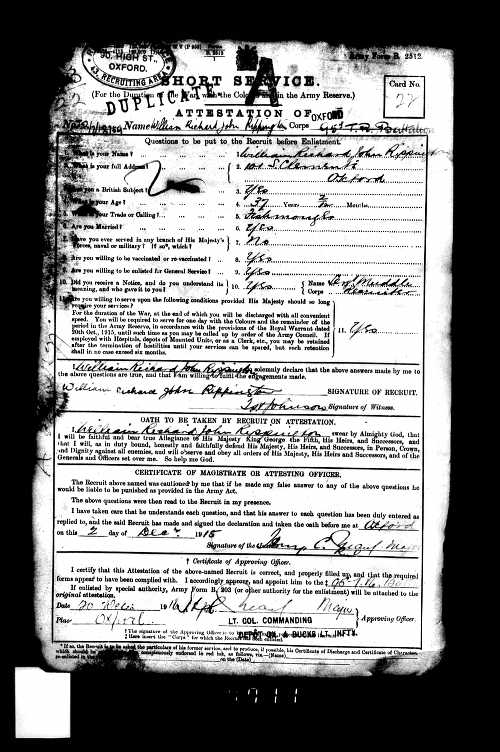 90, HIGH ST.,
OXFORD.
43, RECRUITING AREA
Army Form B. 2512.
A
SHORT SERVICE.
Card No.
(For the Duration of the War, with the Colours and in the Army Reserve.)
DUPLICATE
ATTESTATION OF
OXFORD
Name William Richard John Rippington Corps
Questions to be put to the Recruit before Enlistment.
What is your Name? 1. William Richard John Rippington
What is your full Address? 2. St Clements
Oxford
you a British Subject? 3. Yes
is your Age? 4. 37 Years Months.
your Trade or Calling? 5. Fishmonger
Are you Married? 6. Yes
Have you ever served in any branch of His Majesty's
Forces, naval or military? If so*, which? 7. No
8. Are you willing to be vaccinated or re-vaccinated? 8. Yes
9. Are you willing to be enlisted for General Service? 9. Yes
10. Did you receive a Notice, and do you understand its
meaning, and who gave it to you? 10. Yes Name
Corps
11. Are you willing to serve upon the following conditions provided His Majesty should so long
require your services?
For the duration of the War, at the end of which you will be discharged with all convenient
speed. You will be required to serve for one day with the Colours and the remainder of the
period in the Army Reserve, in accordance with the provisions of the Royal Warrant dated
20th Oct., 1915, until such time as you may be called up by order of the Army Council. If
employed with Hospitals, depots of Mounted Units, or as a Clerk, etc., you may be retained
after the termination of hostilities until your services can be spared, but such retention
shall in no case exceed six months.
11. Yes
I, William Richard John Rippington solemnly declare that the above answers made by me to
the above questions are true, and that I am willing to fulfil the engagements made.
William Richard John Rippington SIGNATURE OF RECRUIT.
Johnson Signature of Witness.
OATH TO BE TAKEN BY RECRUIT ON ATTESTATION.
I, William Richard John Rippington swear by Almighty God, that
I will be faithful and bear true Allegiance to His Majesty King George the Fifth, His Heirs, and Successors, and
that I will, as in duty bound, honestly and faithfully defend His Majesty, His Heirs, and Successors, in Person, Crown,
and Dignity against all enemies, and will observe and obey all orders of His Majesty, His Heirs and Successors, and of the
Generals and Officers set over me. So help me God.
CERTIFICATE OF MAGISTRATE OR ATTESTING OFFICER.
The Recruit above named was cautioned by me that if he made any false answer to any of the above questions he
would be liable to be punished as provided in the Army Act.
The above questions were then read to the Recruit in my presence.
I have taken care that he understands each question, and that his answer to each question has been duly entered as
replied to, and the said Recruit has made and signed the declaration and taken the oath before me at Oxford
on this 2 day of Dec 1915
Signature of the
† Certificate of Approving Officer.
I certify that this Attestation of the above-named Recruit is correct, and properly filled up, and that the required
forms appear to have been complied with. I accordingly approve, and appoint him to the ‡
If enlisted by special authority, Army Form B. 203 (or other authority for the enlistment) will be attached to the
original attestation.
Date 1916 Major
Place Oxford Approving Officer.
LT. COL. COMMANDING
DEPOT OX. & BUCKS LT. INFTY.
† The signature of the Approving Officer is to
‡ Here insert the "Corps" for which the Recruit
* If so, the Recruit is to be asked the particulars of his former service, and to produce, if possible, his Certificate of Discharge and Certificate of Character,
911